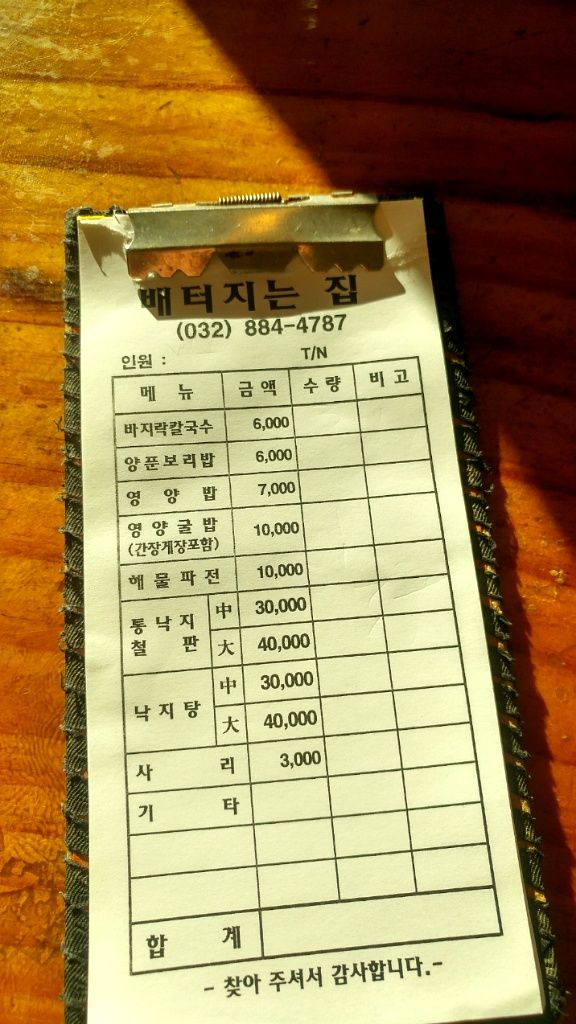 배터지는 집
(032) 884-4787
인원 : T/N
메 뉴 금 액 수 량 비 고
바지락칼국수 6,000
양푼보리밥 6,000
영 양 밥 7,000
영 양 굴 밥 10,000
(간장게장포함)
해 물 파 전 10,000
통 낙 지 철 판 中 30,000
大 40,000
낙 지 탕 中 30,000
大 40,000
사 리 3,000
기 타
합 계
- 찾아 주셔서 감사합니다.-